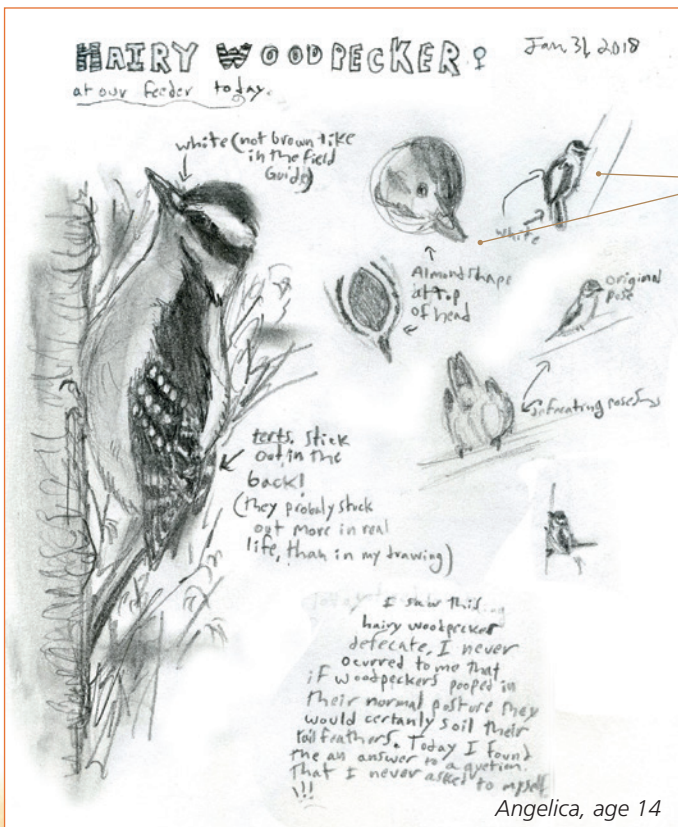 HAIRY WOODPECKER ♀
Jan 31, 2018
at our feeder today.
white (not brown like
in the field
Guide)
white
Almond shape
at top
of head
original
pose
terts. stick
out in the
back!
(they probaly stuck
out more in real
life, than in my drawing)
I saw this
hairy woodpecker
defecate, I never
ocurred to me that
if woodpeckers pooped in
their normal posture they
would certanly soil their
tail feathers. Today I found
the an answer to a quetion
That I never asked to myself
!!!
Angelica, age 14